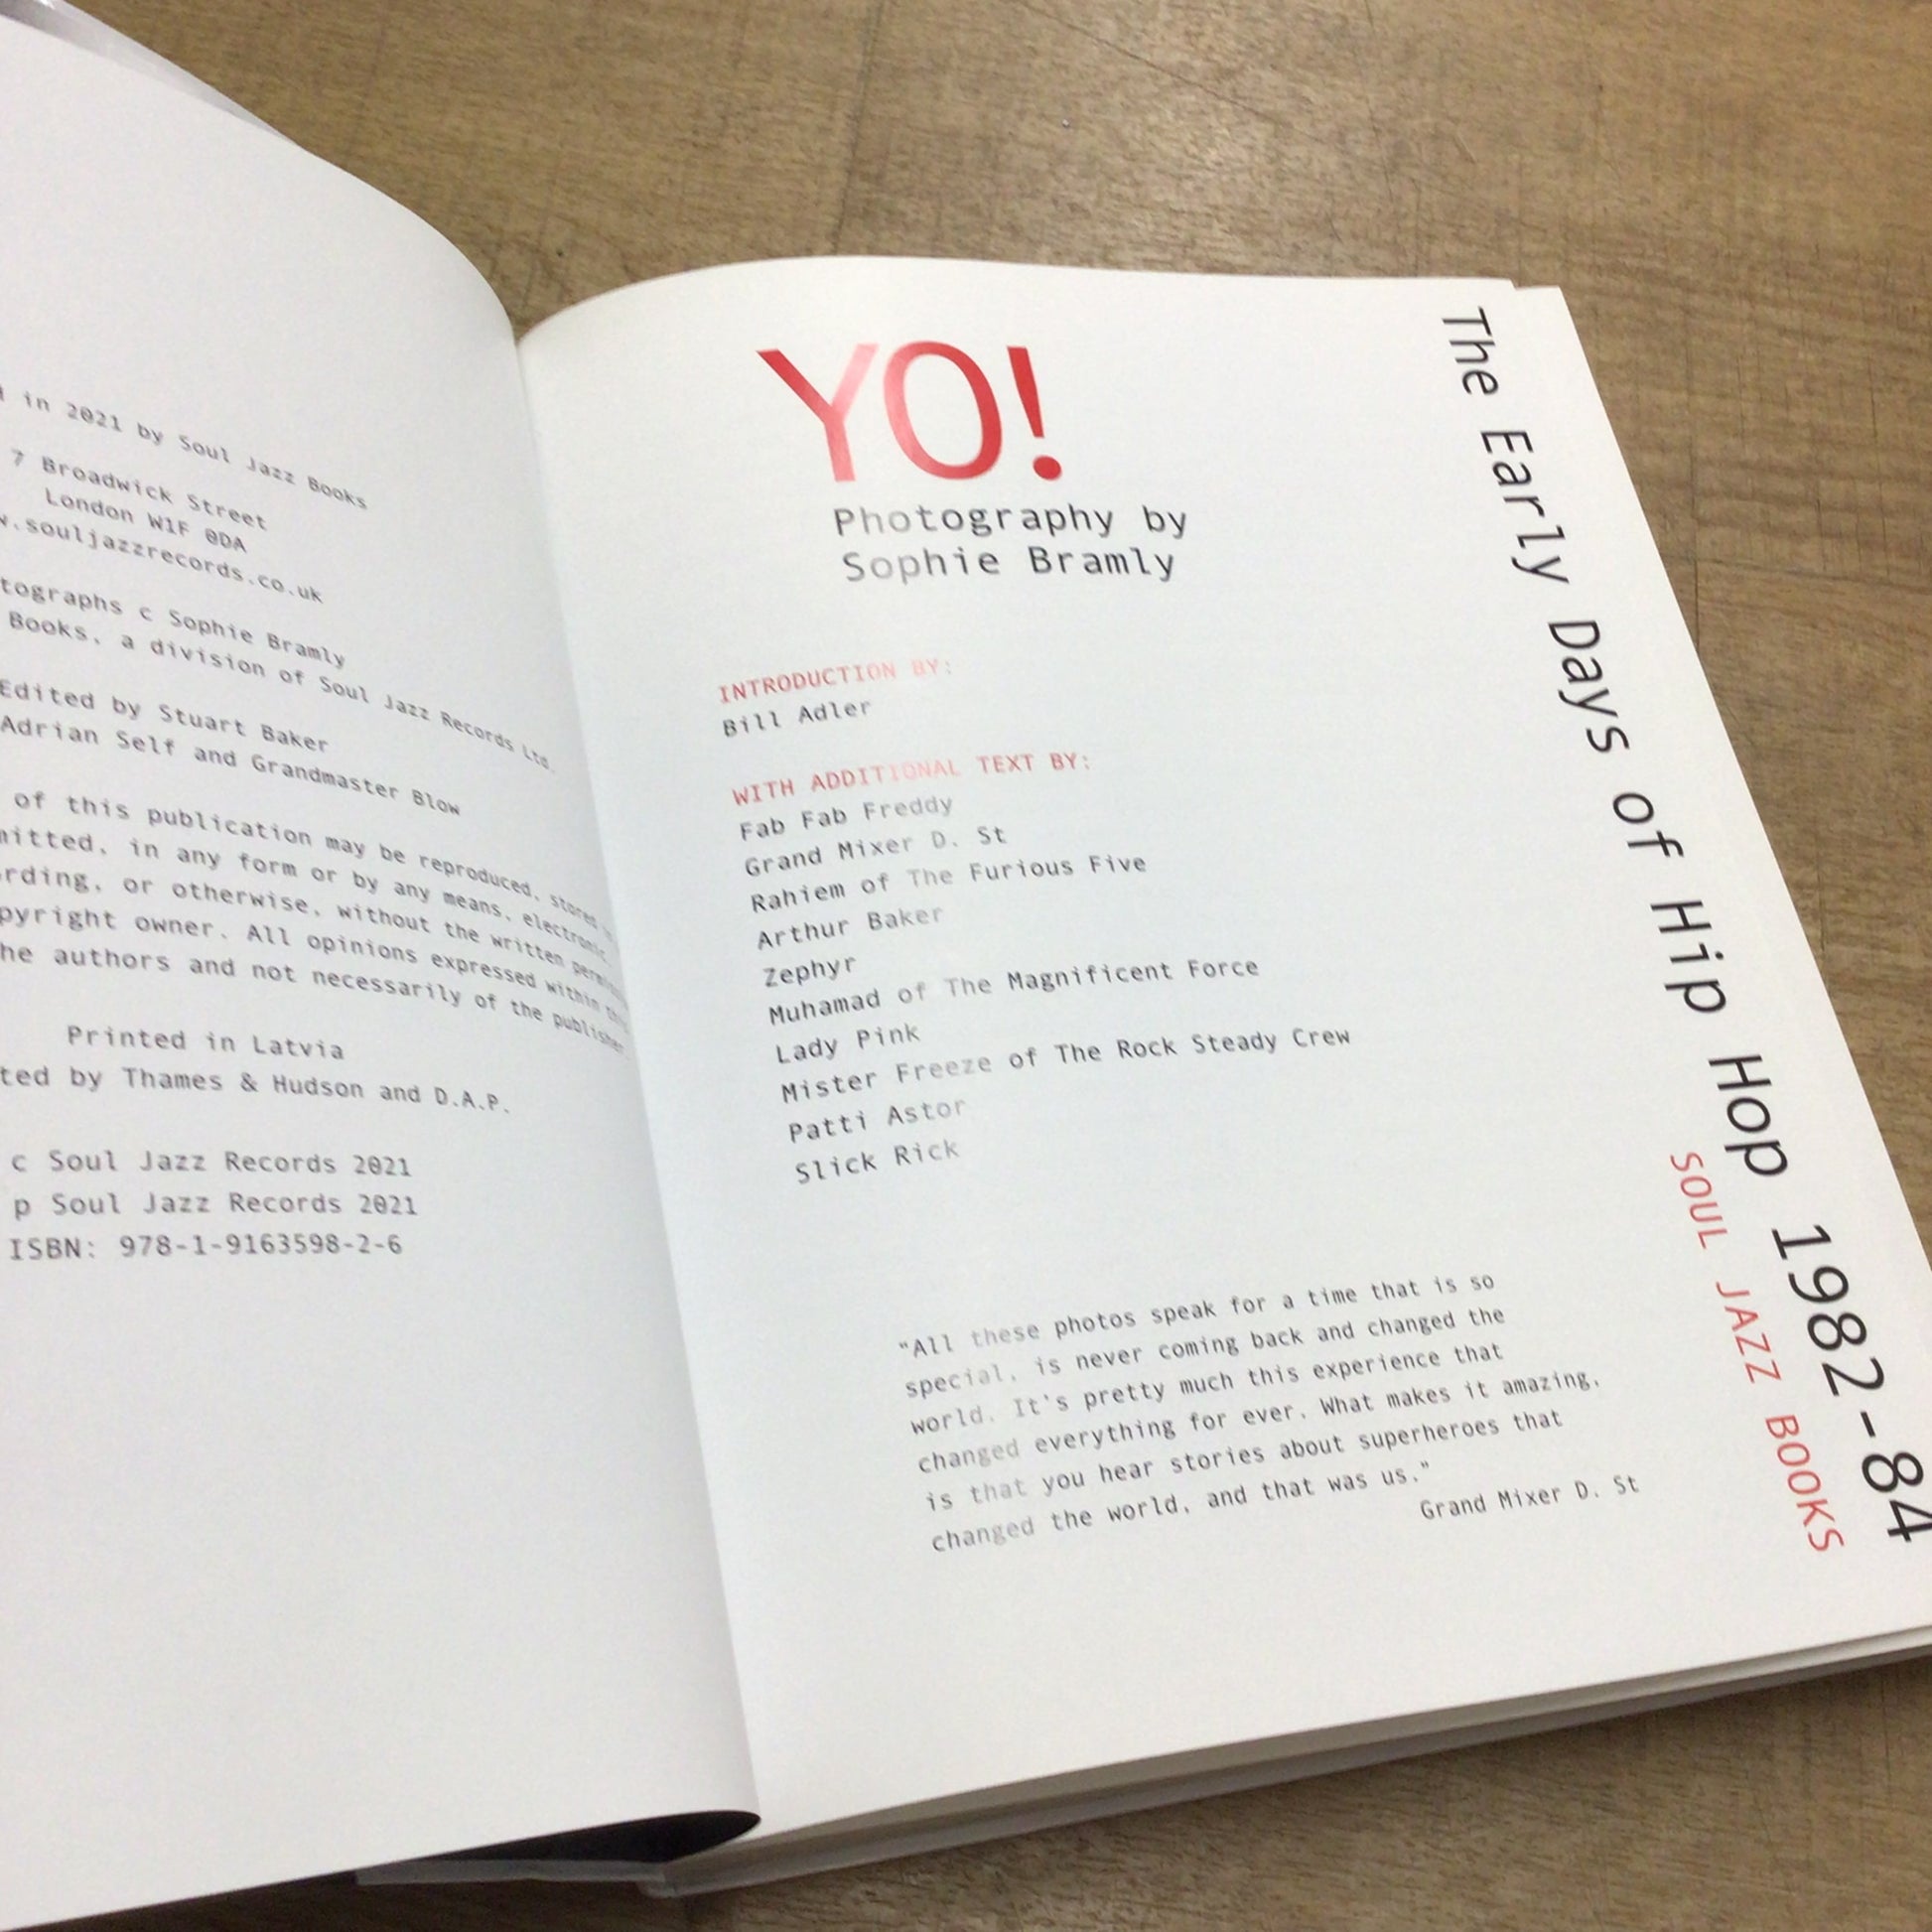 in 2021 by Soul Jazz Books
7 Broadwick Street
London W1F 0DA
.souljazzrecords.co.uk
tographs c Sophie Bramly
Books, a division of Soul Jazz Records Ltd.
Edited by Stuart Baker
Adrian Self and Grandmaster Blow
of this publication may be reproduced, stored
mitted, in any form or by any means, electronic,
rding, or otherwise, without the written
pyright owner. All opinions expressed within this
he authors and not necessarily of the publisher.
Printed in Latvia
ted by Thames & Hudson and D.A.P.
c Soul Jazz Records 2021
p Soul Jazz Records 2021
ISBN: 978-1-9163598-2-6
YO!
Photography by
Sophie Bramly
INTRODUCTION BY:
Bill Adler
WITH ADDITIONAL TEXT BY:
Fab Fab Freddy
Grand Mixer D. St
Rahiem of The Furious Five
Arthur Baker
Zephyr
Muhamad of The Magnificent Force
Lady Pink
Mister Freeze of The Rock Steady Crew
Patti Astor
Slick Rick
"All these photos speak for a time that is so
special, is never coming back and changed the
world. It's pretty much this experience that
changed everything for ever. What makes it amazing,
is that you hear stories about superheroes that
changed the world, and that was us."
Grand Mixer D. St
The Early Days of Hip Hop 1982-84
SOUL JAZZ BOOKS